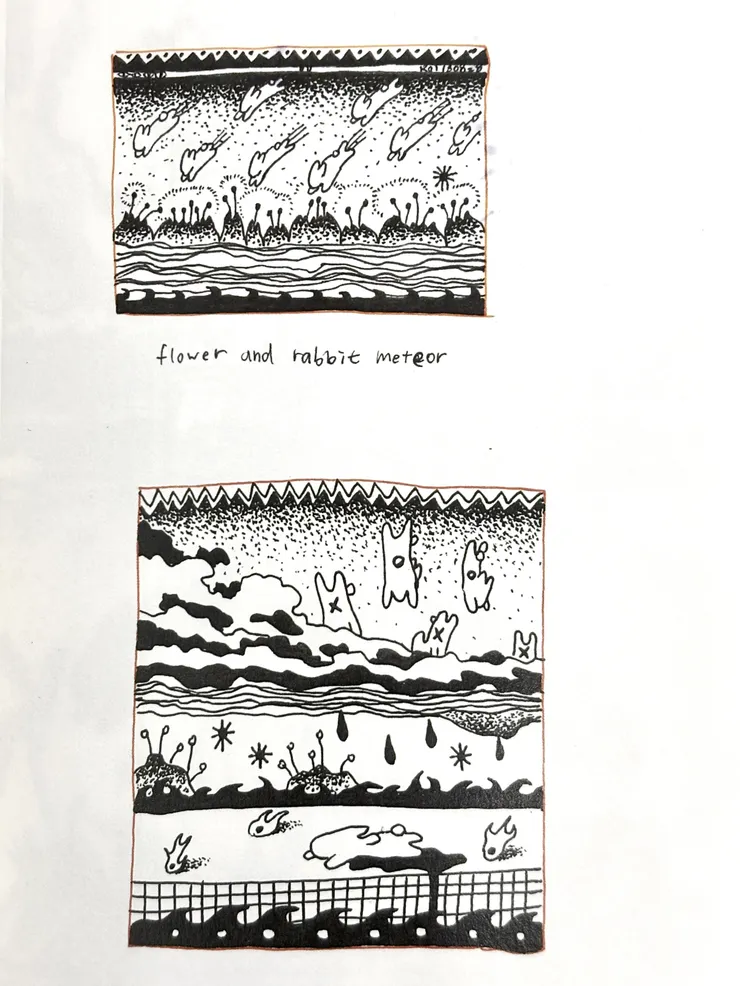 flower and rabbit meteor